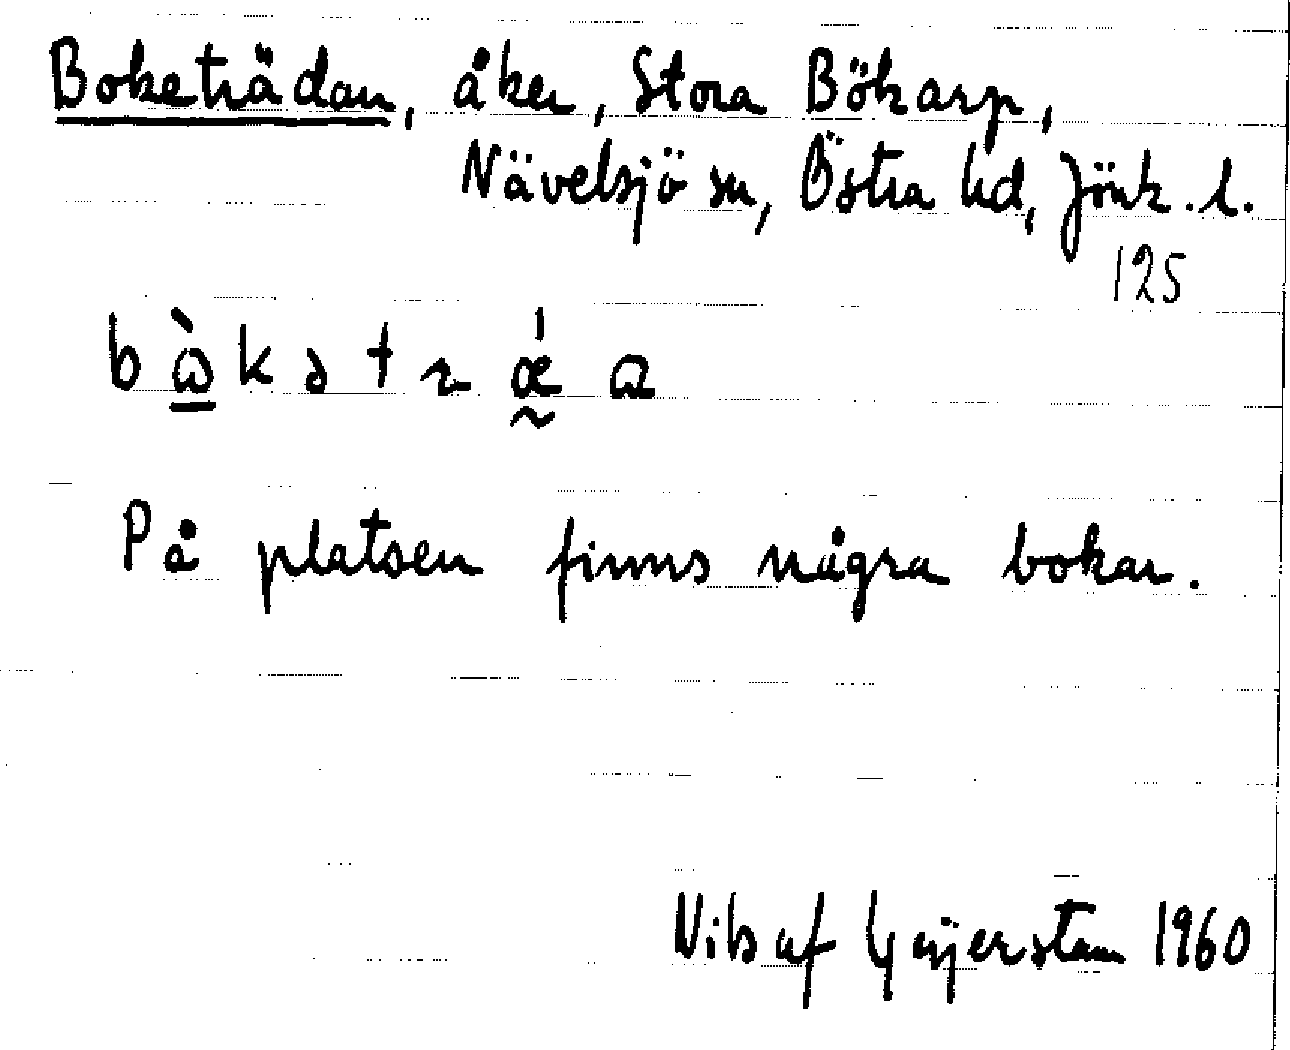 Boketrädan, åker, Stora Bökarp,
Nävelsjö sn, Östra hd, Jönk. l.
125
På platsen finns några bokar.
Nils af Geijerstam 1960